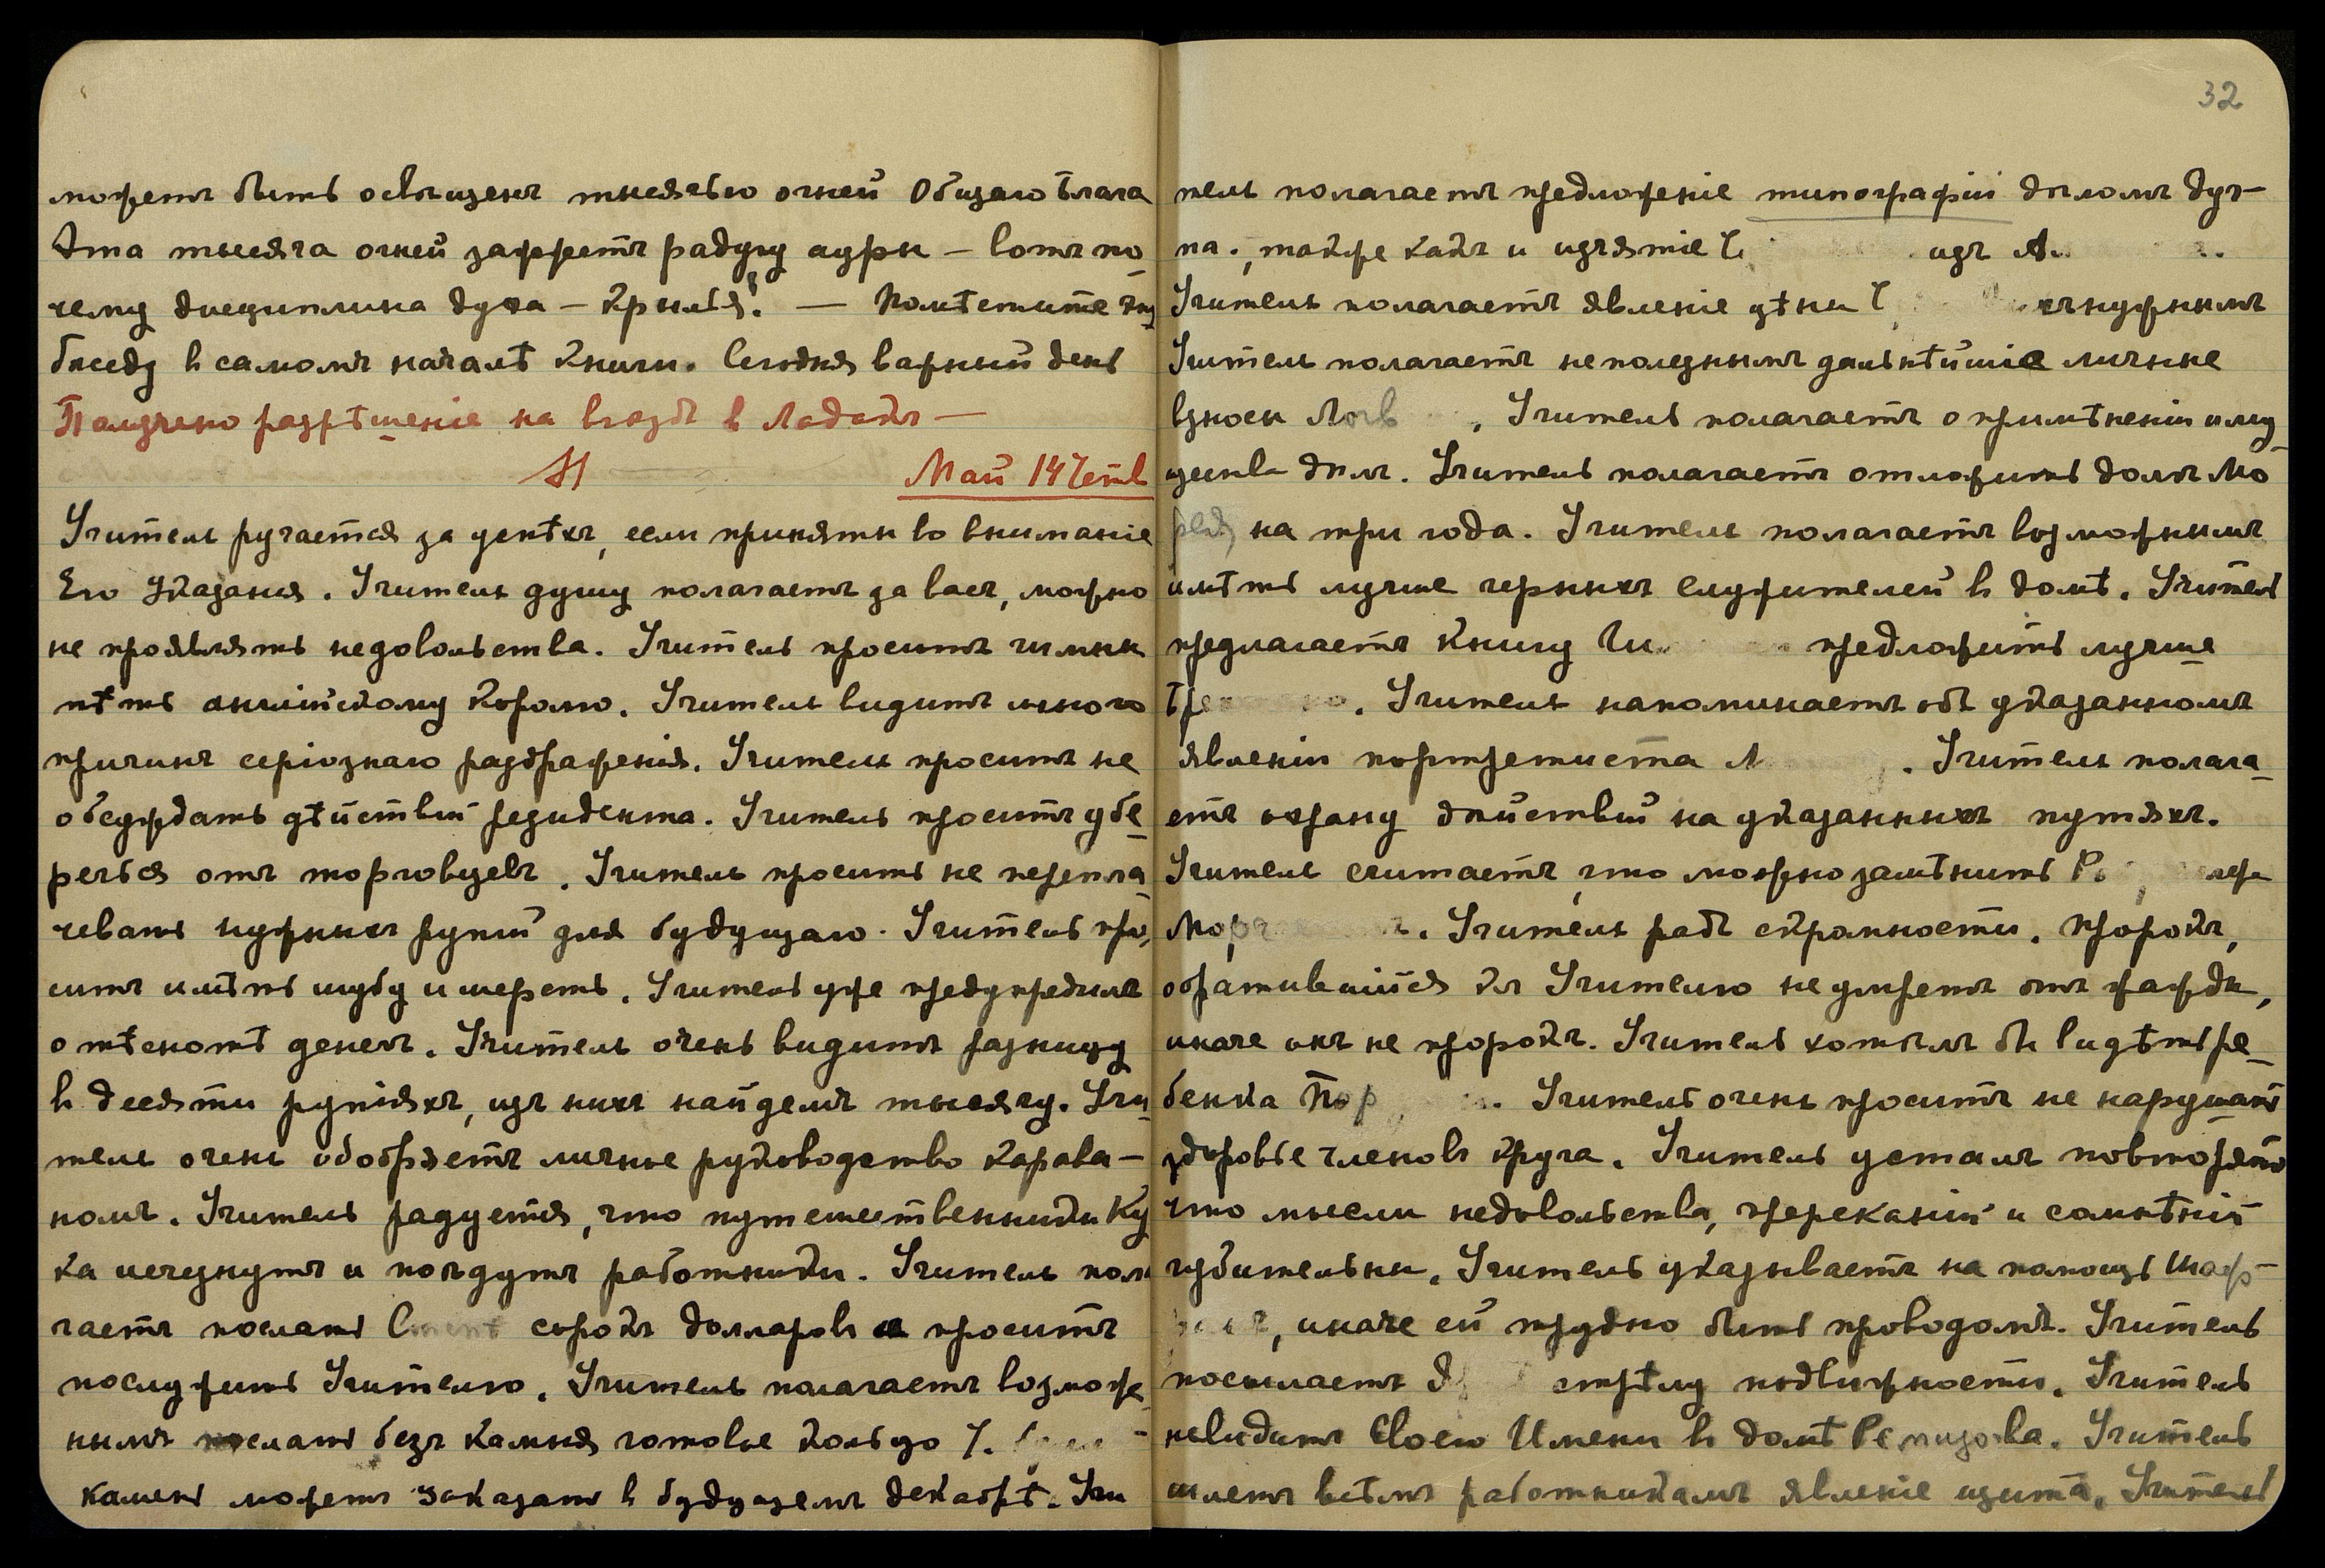 можетъ быть освѣщенъ тысячью огней Общаго блага
Эта тысяча огней зажжетъ радугу ауры – вотъ по-
чему дисциплина духа – крылья! — Помѣстите эту
бесѣду в самомъ началѣ книги. Сегодня важный день
Получено разрѣшеніе на въѣздъ в Ладакъ —
Май 14 Четв
Учитель ручается за успѣхъ, если приняты во вниманіе
Его указания. Учитель душу полагаетъ за васъ, можно
не проявлять недовольства. Учитель проситъ гимны
пѣть английскому королю. Учитель видитъ много
причинъ серіознаго раздраженія. Учитель проситъ не
обсуждать дѣйствій резидента. Учитель проситъ убе-
речься отъ торговцевъ. Учитель проситъ не перепла
чивать нужныхъ рупій для будущаго. Учитель про-
ситъ имѣть шубу и шерсть. Учитель уже предупредилъ
о тѣснотѣ денегъ. Учитель очень видитъ разницу
в десяти рупіяхъ, изъ нихъ найдемъ тысячу. Учи-
тель очень одобряетъ личное руководство карава-
номъ. Учитель радуется, что путешественники Ку
ка исчезнутъ и пойдутъ работники. Учитель пола
гаетъ послать сорокъ долларовъ и проситъ
послужить Учителю. Учитель полагаетъ возмож-
нымъ послать безъ камня готовое кольцо
камень можетъ заказать в будущемъ декабрѣ. Учи
32
тель полагаетъ предложеніе типографіи дѣломъ Дут-
па., также какъ и изъятіе изъ
Учитель полагаетъ явленіе цѣны нужнымъ
Учитель полагаетъ неполезнымъ дальнѣйшіе личные
взносы. Учитель полагаетъ о примѣненіи иму-
щества дѣлъ. Учитель полагаетъ отложить домъ Мо
рея на три года. Учитель полагаетъ возможнымъ
имѣть лучше черныхъ служителей в домѣ. Учитель
предлагаетъ книгу предложить лучше
Учитель напоминаетъ объ указанномъ
явленіи портретиста. Учитель полага-
етъ охрану дѣйствій на указанныхъ путяхъ.
Учитель считаетъ, что можно замѣнить
Учитель радъ скромности. Пророкъ,
обратившійся къ Учителю не умретъ отъ жажды,
иначе онъ не пророкъ. Учитель хотѣлъ бы видѣть ре-
бенка. Учитель очень проситъ не нарушать
здоровье членовъ круга. Учитель усталъ повторять
что мысли недовольства, пререканій и сомнѣній
губительны. Учитель указываетъ на помощь
, иначе ей трудно быть проводомъ. Учитель
посылаетъ стрѣлу подвижности. Учитель
не видитъ Своего Имени в домѣ Ремизова. Учитель
шлетъ всѣмъ работникамъ явленіе щита. Учитель